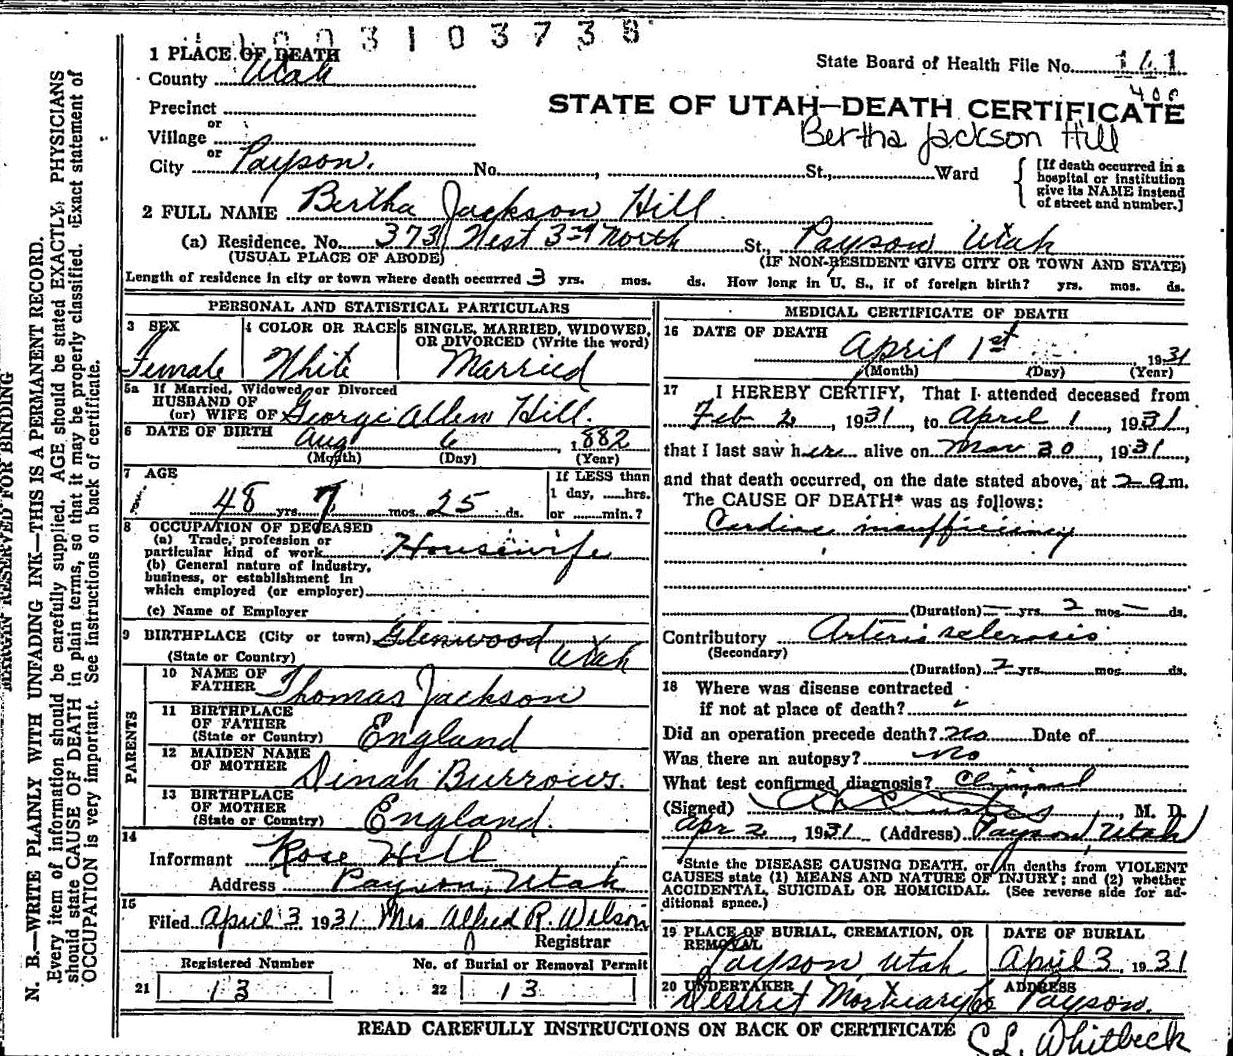 3 1 0 3 7 3 8
1 PLACE OF DEATH
County Utah
State Board of Health File No. 141
400
Precinct
or
Village
or
City Payson. No. , St., Ward
STATE OF UTAH—DEATH CERTIFICATE
Bertha Jackson Hill
[If death occurred in a hospital or institution give its NAME instead of street and number.]
2 FULL NAME Bertha Jackson Hill
(a) Residence. No. 373 West 3rd North St., Payson Utah
(USUAL PLACE OF ABODE) (IF NON-RESIDENT GIVE CITY OR TOWN AND STATE)
Length of residence in city or town where death occurred 3 yrs. mos. ds. How long in U. S., if of foreign birth? yrs. mos. ds.
PERSONAL AND STATISTICAL PARTICULARS
3 SEX
Female
4 COLOR OR RACE
White
5 SINGLE, MARRIED, WIDOWED, OR DIVORCED (Write the word)
Married
5a If Married, Widowed or Divorced
HUSBAND OF
(or) WIFE OF George Allen Hill.
6 DATE OF BIRTH Aug 6, 1882
(Month) (Day) (Year)
7 AGE
48 yrs. 7 mos. 25 ds.
If LESS than
1 day, hrs.
or min.?
8 OCCUPATION OF DECEASED
(a) Trade, profession or
particular kind of work Housewife
(b) General nature of industry,
business, or establishment in
which employed (or employer)
(c) Name of Employer
9 BIRTHPLACE (City or town) Glenwood
(State or Country) Utah
PARENTS
10 NAME OF
FATHER Thomas Jackson
11 BIRTHPLACE
OF FATHER
(State or Country) England
12 MAIDEN NAME
OF MOTHER Dinah Burrows.
13 BIRTHPLACE
OF MOTHER
(State or Country) England.
14
Informant Rose Hill
Address Payson, Utah
15
Filed April 3 1931 Mrs Alfred R. Wilson
Registrar
Registered Number
21 13
No. of Burial or Removal Permit
22 13
MEDICAL CERTIFICATE OF DEATH
16 DATE OF DEATH
April 1st, 1931
(Month) (Day) (Year)
17 I HEREBY CERTIFY, That I attended deceased from
Feb 2, 1931, to April 1, 1931,
that I last saw her alive on Mar 30, 1931,
and that death occurred, on the date stated above, at 2 a m.
The CAUSE OF DEATH* was as follows:
Cardiac insufficiency
(Duration) — yrs. 2 mos. — ds.
Contributory Arterio sclerosis
(Secondary)
(Duration) 2 yrs. mos. ds.
18 Where was disease contracted
if not at place of death?
Did an operation precede death? No Date of
Was there an autopsy? No
What test confirmed diagnosis? Clinical
(Signed) , M. D.
Apr 2, 1931 (Address) Payson, Utah
*State the DISEASE CAUSING DEATH, or in deaths from VIOLENT
CAUSES state (1) MEANS AND NATURE OF INJURY; and (2) whether
ACCIDENTAL, SUICIDAL OR HOMICIDAL. (See reverse side for ad-
ditional space.)
19 PLACE OF BURIAL, CREMATION, OR
REMOVAL
Payson, Utah
DATE OF BURIAL
April 3, 1931
20 UNDERTAKER
Deseret Mortuary Co
ADDRESS
Payson.
READ CAREFULLY INSTRUCTIONS ON BACK OF CERTIFICATE
C L. Whitbeck
MARGIN RESERVED FOR BINDING
N. B.—WRITE PLAINLY WITH UNFADING INK—THIS IS A PERMANENT RECORD.
Every item of information should be carefully supplied. AGE should be stated EXACTLY. PHYSICIANS
should state CAUSE OF DEATH in plain terms, so that it may be properly classified. Exact statement of
OCCUPATION is very important. See instructions on back of certificate.